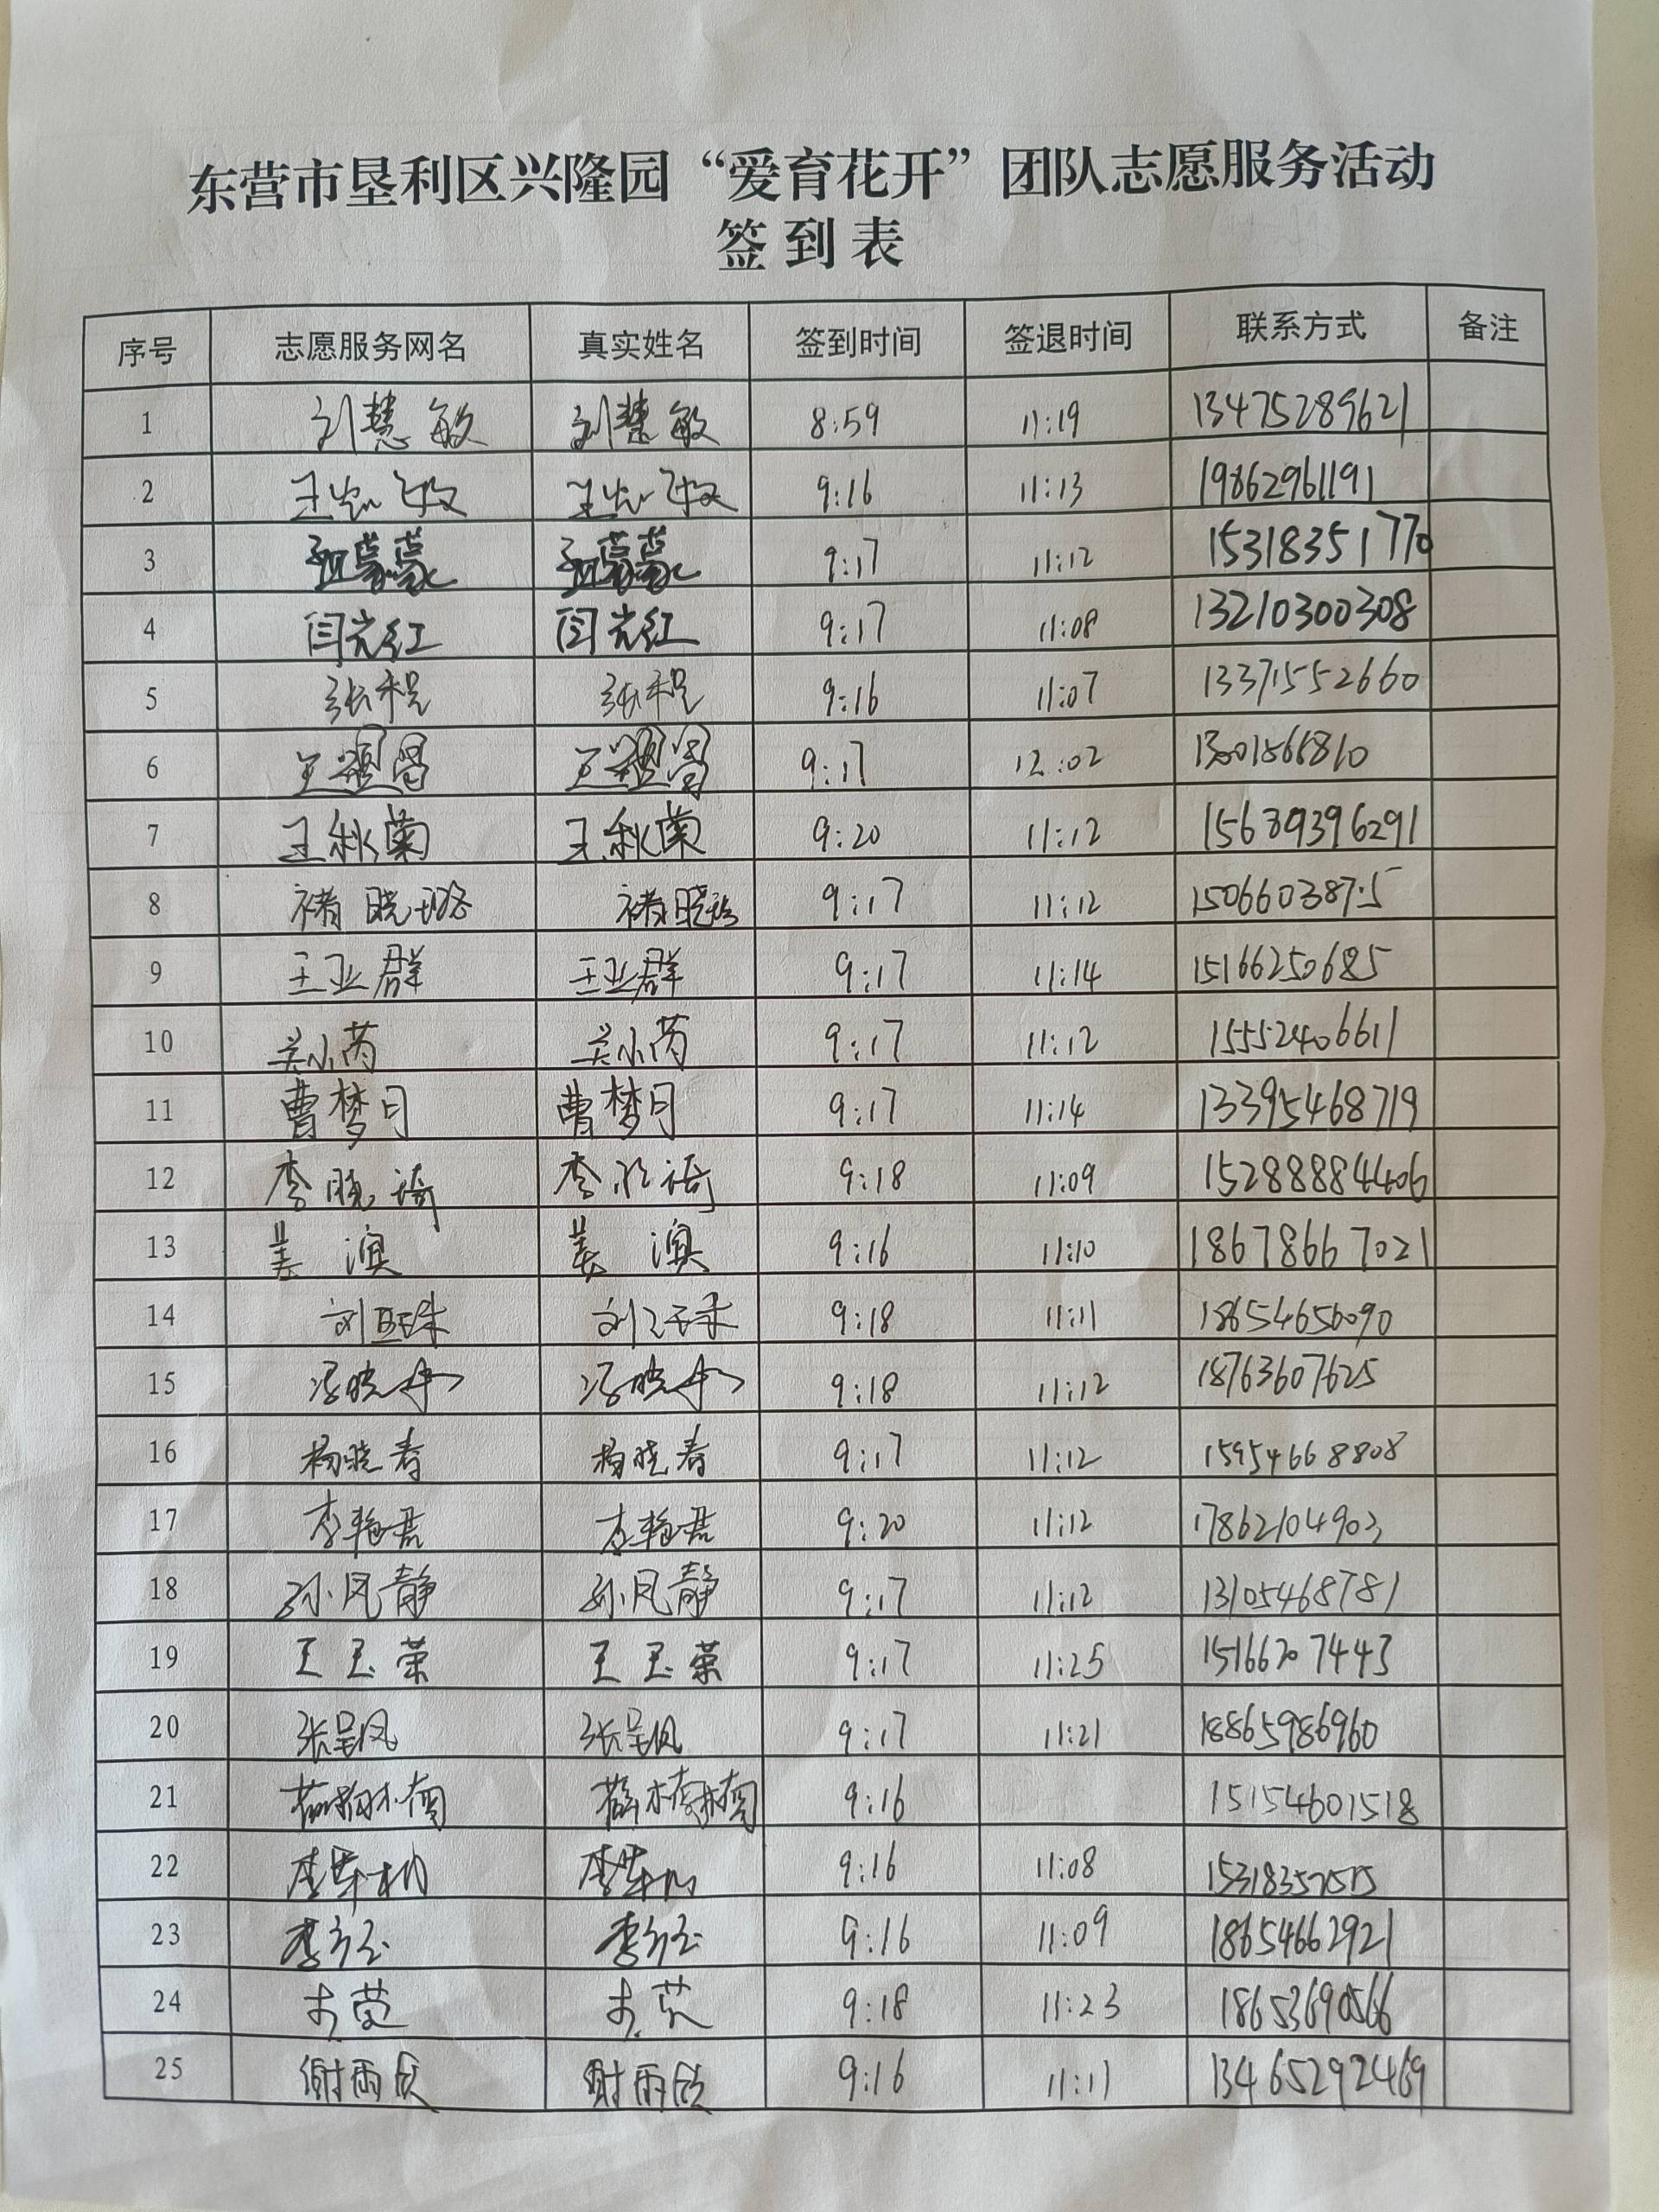 东营市垦利区兴隆园“爱育花开”团队志愿服务活动
签到表
序号 志愿服务网名 真实姓名 签到时间 签退时间 联系方式 备注
1 刘慧敏 刘慧敏 8:59 11:19 13475289621
2 9:16 11:13 19862961191
3 9:17 11:12 15318351770
4 闫光红 闫光红 9:17 11:08 13210300308
5 张程 张程 9:16 11:07 13371552660
6 9:17 12:02
7 王秋菊 王秋菊 9:20 11:12
8 褚晓璐 褚晓璐 9:17 11:12
9 王亚群 王亚群 9:17 11:14 15166250685
10 吴小芮 吴小芮 9:17 11:12 15552406611
11 曹梦月 曹梦月 9:17 11:14 13395468719
12 9:18 11:09 15288884406
13 姜澳 姜澳 9:16 11:10 18678667021
14 9:18 11:11 18654656090
15 9:18 11:12 18763607625
16 杨晓春 杨晓春 9:17 11:12 15954668808
17 李艳君 李艳君 9:20 11:12 17862104903
18 孙凤静 孙凤静 9:17 11:12 13105468781
19 王玉荣 王玉荣 9:17 11:25 15166207443
20 张呈凤 张呈凤 9:17 11:21 18865986960
21 9:16 15154601518
22 9:16 11:08
23 9:16 11:09 18654662921
24 9:18 11:23
25 谢雨辰 9:16 11:11 13465292469